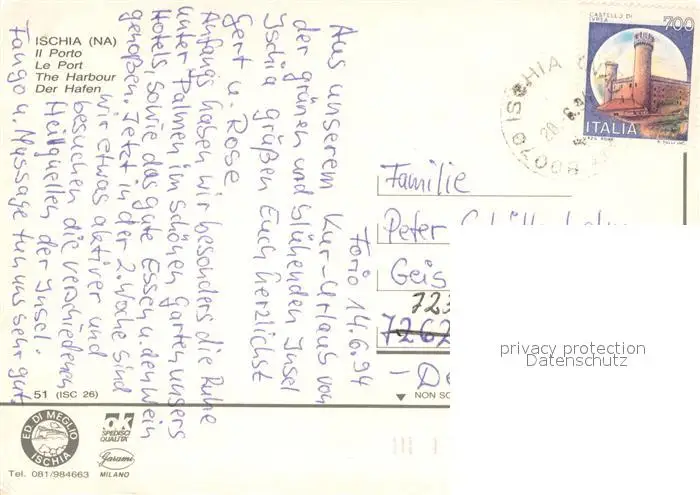 ISCHIA (NA)
Il Porto
Le Port
The Harbour
Der Hafen
Forio 14.6.94
Aus unserem Kur-Urlaub von
der grünen und blühenden Insel
Ischia grüßen Euch herzlichst
Gert u. Rose
Anfangs haben wir besonders die Ruhe
unter Palmen im schönen Garten unsers
Hotels, sowie das gute Essen u. den Wein
genoßen. Jetzt in der 2. Woche sind
wir etwas aktiver und
besuchen die verschiedenen
Heilquellen der Insel.
Fango u. Massage tun uns sehr gut.
51 (ISC 26)
ED. DI MEGLIO
ISCHIA
Tel. 081/984663
SPEDISCI
QUALITA'
Garami
MILANO
CASTELLO DI
IVREA
700
ITALIA
80070 ISCHIA
Familie
Peter
Geis
723
7262
- De
▼ NON SC
privacy protection
Datenschutz